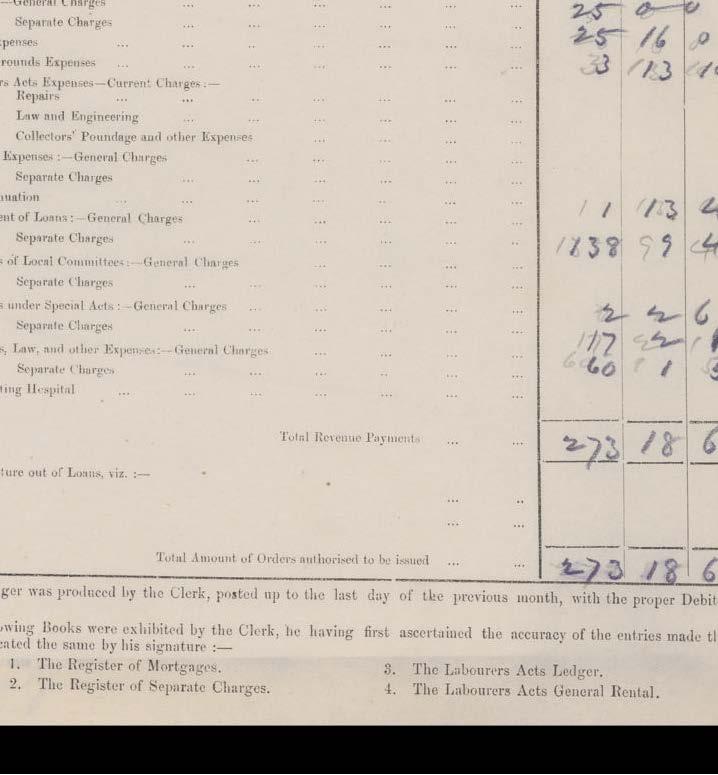 —General Charges 25 0 0
Separate Charges 25 16 0
penses
rounds Expenses 33 13
rs Acts Expenses—Current Charges :—
Repairs
Law and Engineering
Collectors' Poundage and other Expenses
Expenses :—General Charges
Separate Charges
nuation
ent of Loans :—General Charges 13
Separate Charges 9
s of Local Committees:—General Charges
Separate Charges
s under Special Acts :—General Charges 2 2 6
Separate Charges 2
s, Law, and other Expenses:—General Charges
Separate Charges 60 1
ting Hospital
Total Revenue Payments 273 18 6
ture out of Loans, viz. :—
Total Amount of Orders authorised to be issued 273 18 6
ger was produced by the Clerk, posted up to the last day of the previous month, with the proper Debit
wing Books were exhibited by the Clerk, he having first ascertained the accuracy of the entries made th
cated the same by his signature :—
1. The Register of Mortgages. 3. The Labourers Acts Ledger.
2. The Register of Separate Charges. 4. The Labourers Acts General Rental.